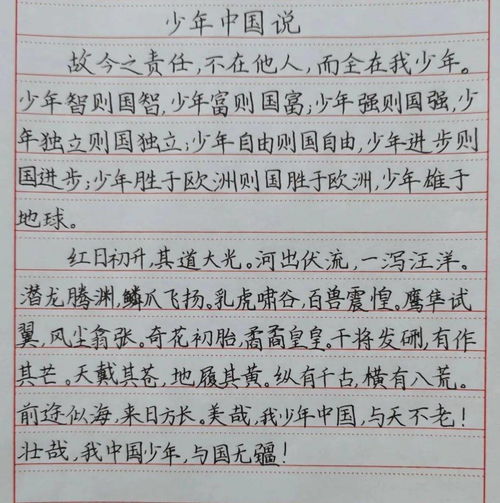 少年中国说
故今之责任,不在他人,而全在我少年。
少年智则国智,少年富则国富;少年强则国强,少
年独立则国独立;少年自由则国自由,少年进步则
国进步;少年胜于欧洲则国胜于欧洲,少年雄于
地球。
红日初升,其道大光。河出伏流,一泻汪洋。
潜龙腾渊,鳞爪飞扬。乳虎啸谷,百兽震惶。鹰隼试
翼,风尘翕张。奇花初胎,矞矞皇皇。干将发硎,有作
其芒。天戴其苍,地履其黄。纵有千古,横有八荒。
前途似海,来日方长。美哉,我少年中国,与天不老!
壮哉,我中国少年,与国无疆!